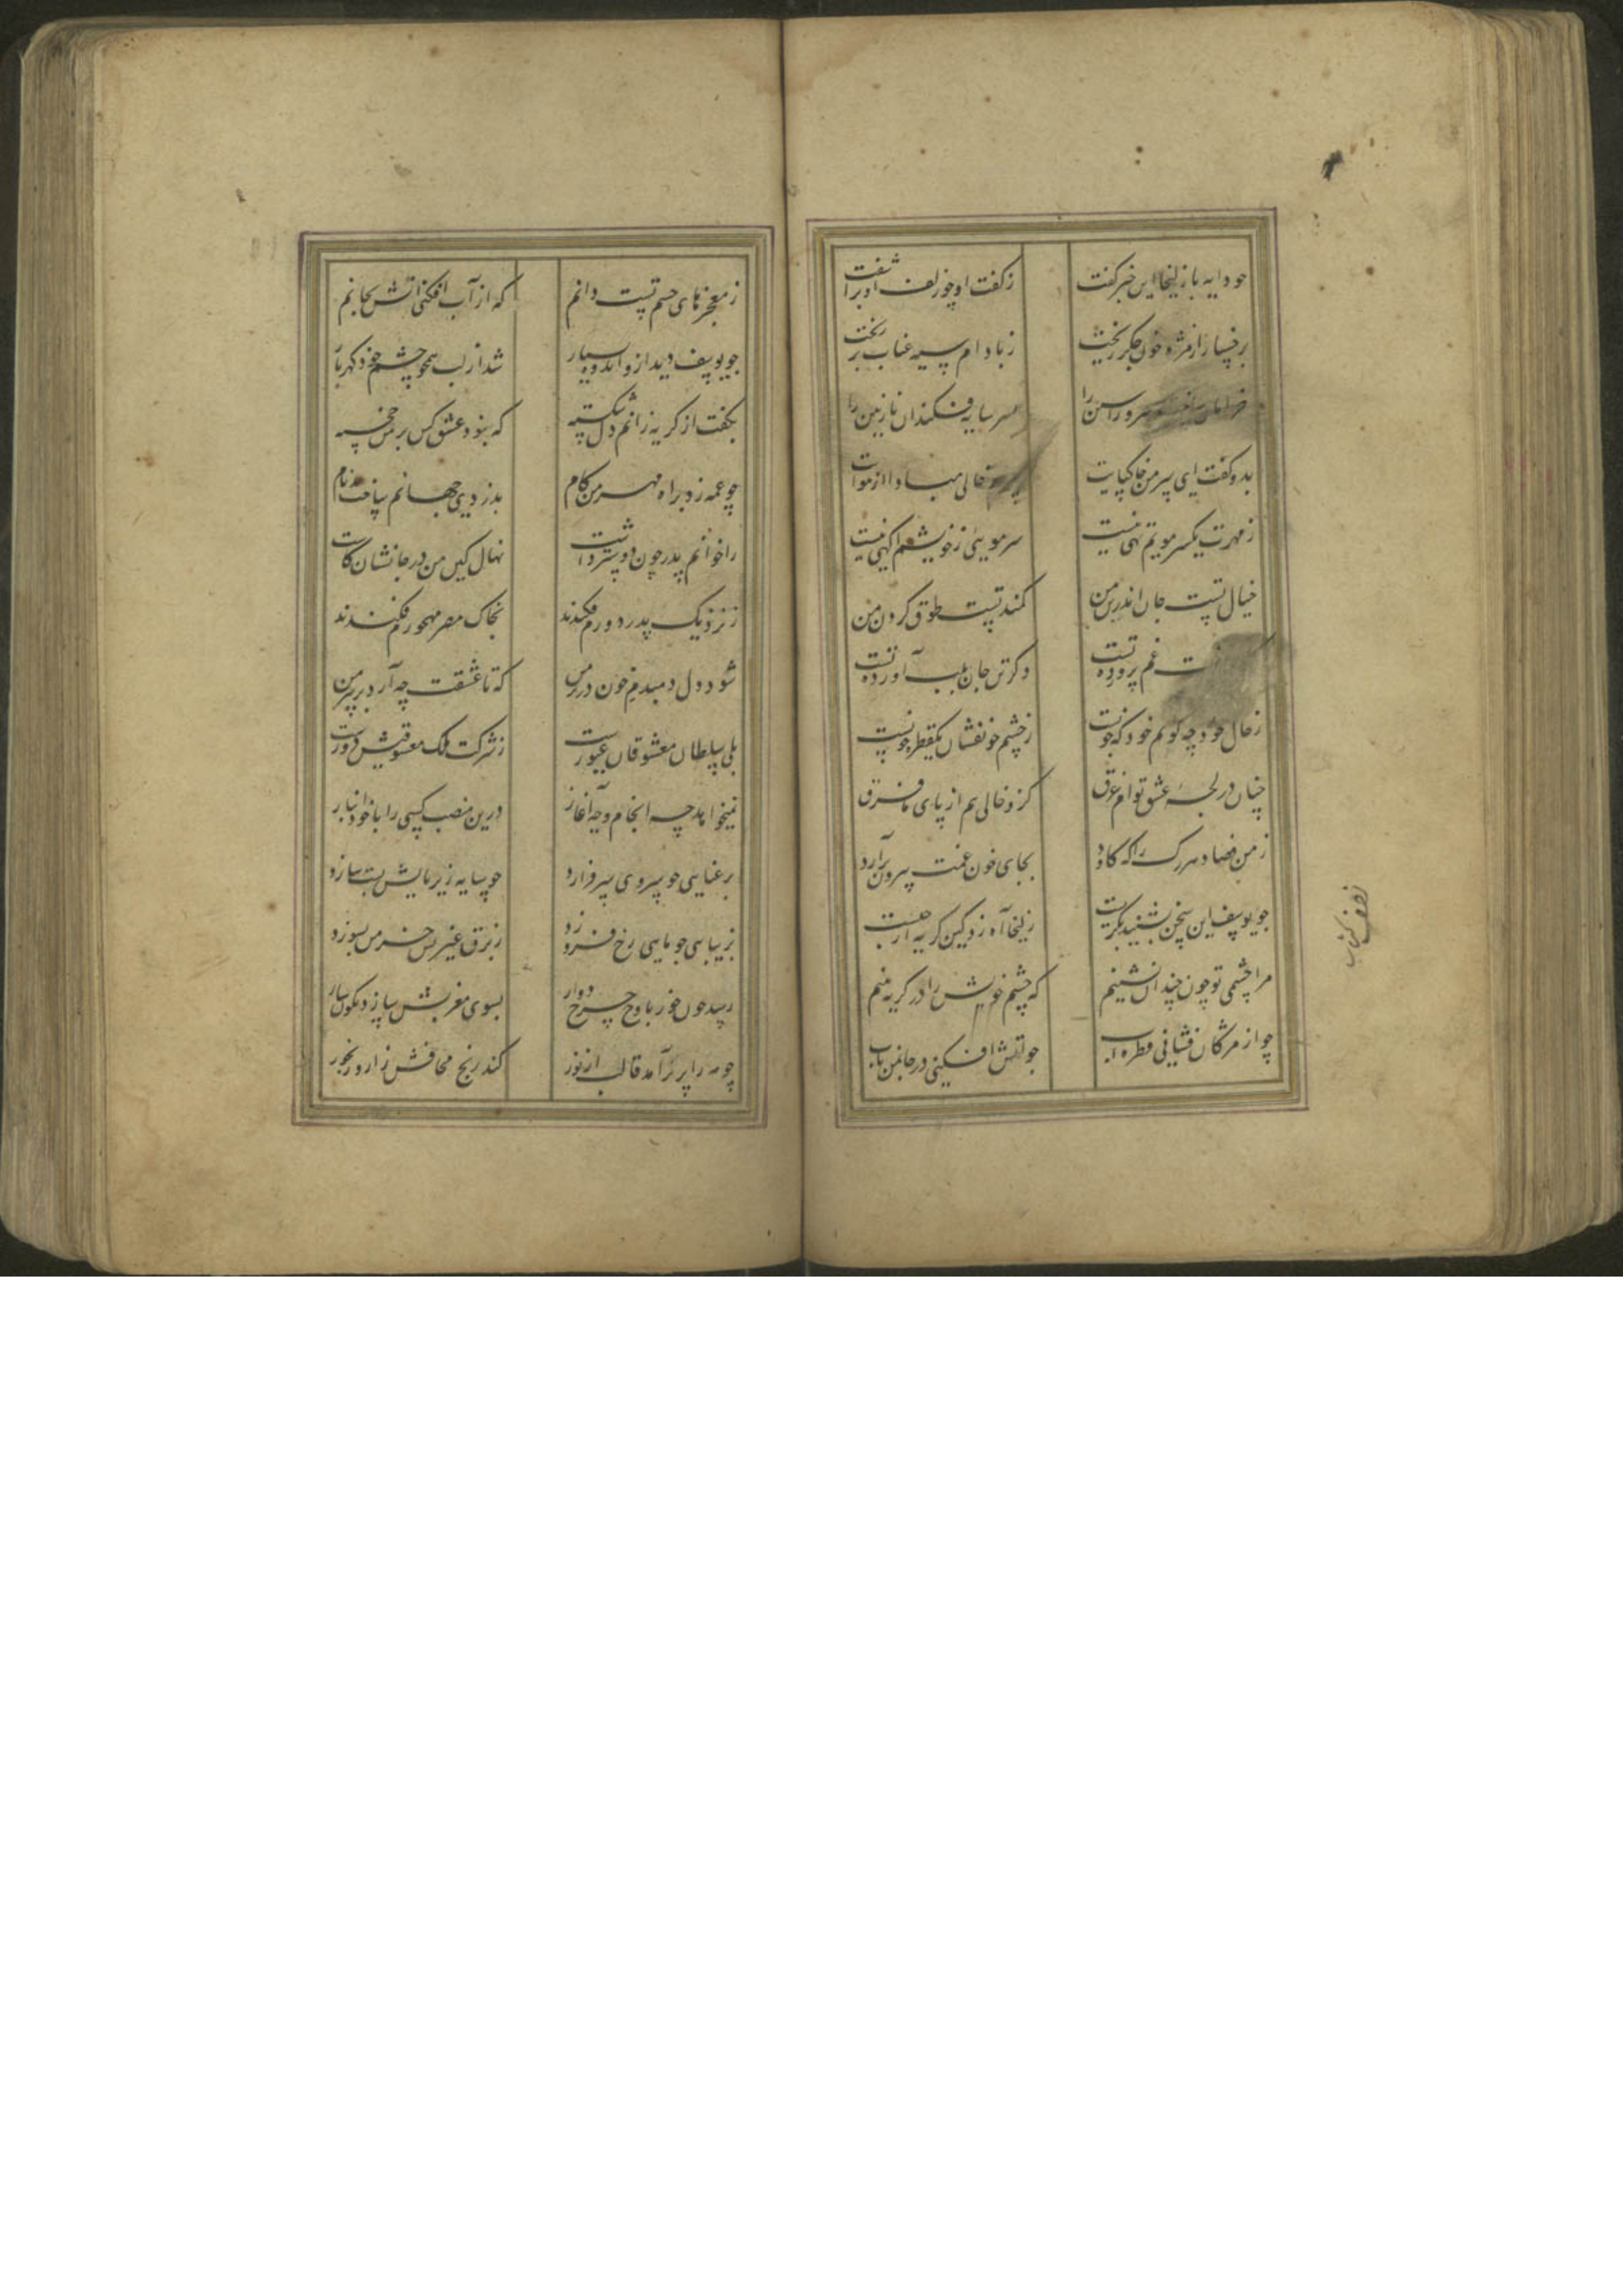 چو دایه با زلیخا این خبر گفت ز گفت او چو زلف او برآشفت
برخسار از مژه خون جگر ریخت ز بادام سیه عناب تر ریخت
خرامان ساخت سرو راستین را بسر سایه فکند آن نازنین را
بدو گفت ای سر من خاک پایت سرم خالی مبادا از هوایت
ز مهرت یکسر مویم تهی نیست سر مویی ز خویشم آگهی نیست
خیال تست جان اندر تن من کمند تست طوق گردن من
غم پرورده تست وگر تن جان بلب آورده تست
ز حال خود چه گویم خود که چونست ز چشم خونفشان یکقطره خونست
چنان در لجه عشق توام غرق کزو خالی نیم از پای تا فرق
ز من فصاد هر رگ را که کاود بجای خون غمت بیرون
چو یوسف این سخن بشنید بگریست زلیخا آه زد کین گریه از چیست
مرا چشمی تو چون خندان نشینم که چشم خویش را در گریه بینم
چو از مژگان فشانی قطره آب چو آتش افکنی در جان من تاب
ز معجزهای حسن تست دانم که از آب افکنی آتش بجانم
چو یوسف دید ازو اندوه بسیار شد از لب همچو چشم خود گهربار
بگفت از گریه زانم دل شکسته که نبود عشق کس بر من خجسته
چو عمه زد براه مهر من گام بدزدی در جهانم ساخت بدنام
ز اخوانم پدر چون دوستر داشت نهال کین من در جانشان کاشت
ز نزدیک پدر دورم فکندند بخاک مصر مهجورم فکندند
شود دل دمبدم خون در بر من که تا عشقت چه آرد بر سر من
بلی سلطان معشوقان غیورست ز شرکت ملک معشوقیش دورست
نمیخواهد چه انجام و چه آغاز درین منصب کسی را با خود انباز
برعنایی چو سروی سر فرازد چو سایه زیر پایش پست سازد
بزیبایی چو ماهی رخ فروزد ز برق غیرتش خرمن بسوزد
رسد چون خور باوج چرخ دوار بسوی مغربش سازد نگونسار
چو مه را پر برآمد قالب از نور کند رنج محاقش زار و رنجور